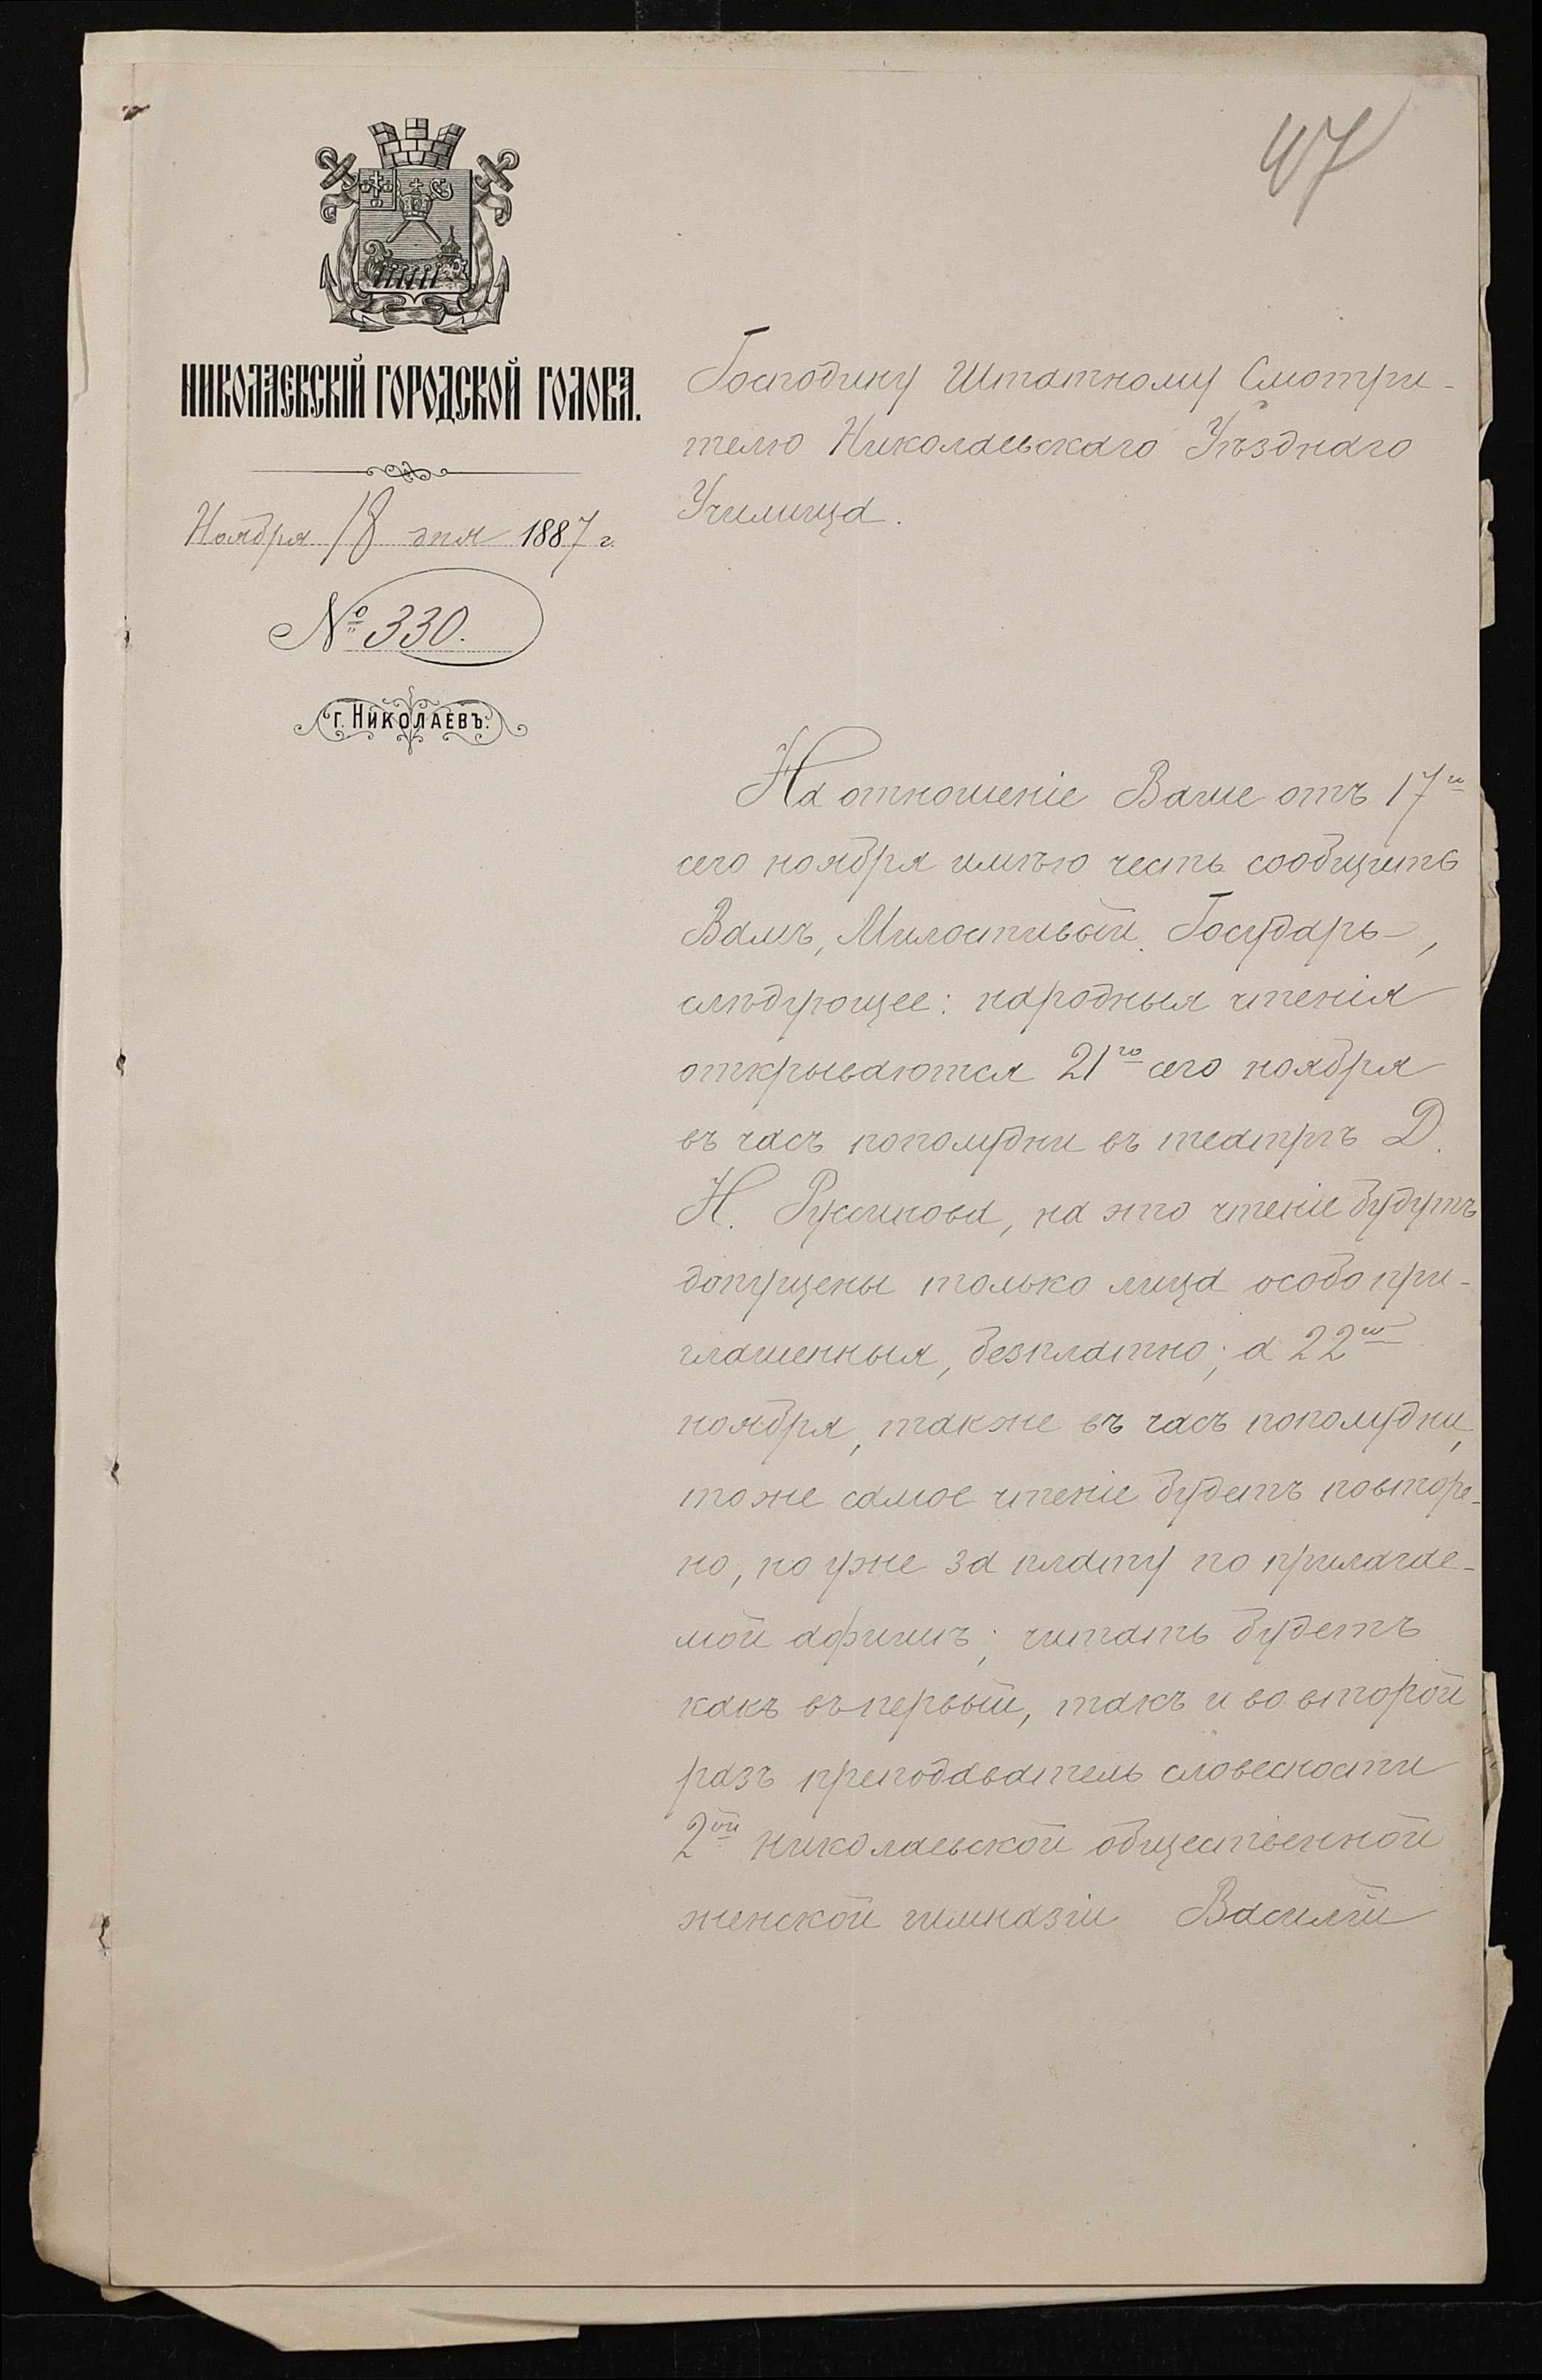 47
НИКОЛАЕВСКІЙ ГОРОДСКОЙ ГОЛОВА.
Ноября 18 дня 1887 г.
№ 330.
Г. НИКОЛАЕВЪ.
Господину Штатному Смотри-
телю Николаевскаго Уѣзднаго
Училища.
На отношеніе Ваше отъ 17го
сего ноября имѣю честь сообщить
Вамъ, Милостивый Государь,
слѣдующее: народныя чтенія
открываются 21го сего ноября
въ часъ пополудни въ театрѣ Д.
Н. Руссинова, на это чтеніе будутъ
допущены только лица особо при-
глашенныя, безплатно; а 22го
ноября, также въ часъ пополудни,
тоже самое чтеніе будетъ повторе-
но, но уже за плату по прилагае-
мой афишѣ; читать будетъ
какъ въ первый, такъ и во второй
разъ преподаватель словесности
2ой николаевской общественной
женской гимназіи Василій